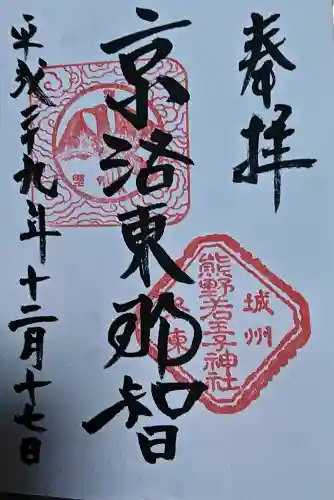 奉拝
京洛東那智
城州
熊野若王子神社
洛東
平成二十九年十二月十七日